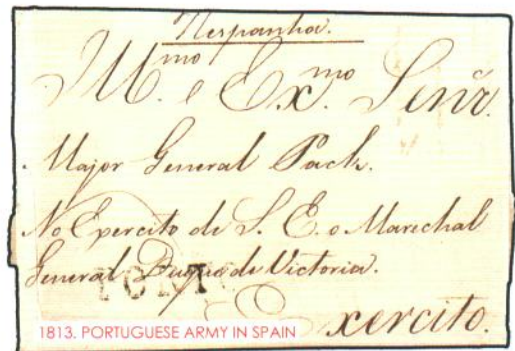 Nespanha.
Ill.mo e Ex.mo Senr.
Major General Pack.
No Exercito de S. E. o Marechal
General Duque da Victoria.
Exercito.
1813. PORTUGUESE ARMY IN SPAIN